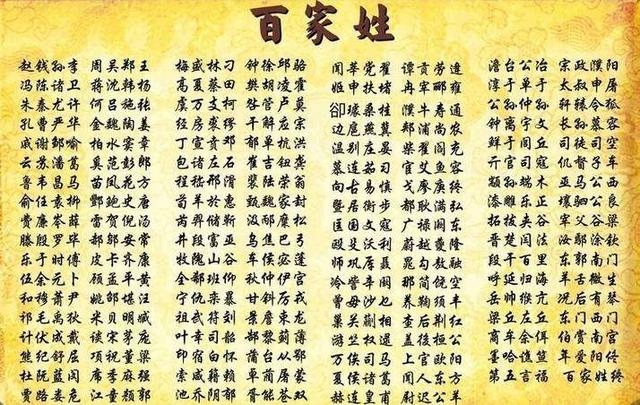 百家姓
赵钱孙李周吴郑王
冯陈褚卫蒋沈韩杨
朱秦尤许何吕施张
孔曹严华金魏陶姜
戚谢邹喻柏水窦章
云苏潘葛奚范彭郎
鲁韦昌马苗凤花方
俞任袁柳酆鲍史唐
费廉岑薛雷贺倪汤
滕殷罗毕郝邬安常
乐于时傅皮卞齐康
伍余元卜顾孟平黄
和穆萧尹姚邵湛汪
祁毛禹狄米贝明臧
计伏成戴谈宋茅庞
熊纪舒屈项祝董梁
杜阮蓝闵席季麻强
贾路娄危江童颜郭
梅盛林刁钟徐邱骆
高夏蔡田樊胡凌霍
虞万支柯昝管卢莫
经房裘缪干解应宗
丁宣贲邓郁单杭洪
包诸左石崔吉钮龚
程嵇邢滑裴陆荣翁
荀羊於惠甄曲家封
芮羿储靳汲邴糜松
井段富巫乌焦巴弓
牧隗山谷车侯宓蓬
全郗班仰秋仲伊宫
宁仇栾暴甘钭厉戎
祖武符刘景詹束龙
叶幸司韶郜黎蓟薄
印宿白怀蒲邰从鄂
索咸籍赖卓蔺屠蒙
池乔阴郁胥能苍双
闻莘党翟谭贡劳逄
姬申扶堵冉宰郦雍
卻璩桑桂濮牛寿通
边扈燕冀郏浦尚农
温别庄晏柴瞿阎充
慕连茹习宦艾鱼容
向古易慎戈廖庾终
暨居衡步都耿满弘
匡国文寇广禄阙东
殴殳沃利蔚越夔隆
师巩厍聂晁勾敖融
冷訾辛阚那简饶空
曾毋沙乜养鞠须丰
巢关蒯相查后荆红
游竺权逯盖益桓公
万俟司马上官欧阳
夏侯诸葛闻人东方
赫连皇甫尉迟公羊
澹台公冶宗政濮阳
淳于单于太叔申屠
公孙仲孙轩辕令狐
钟离宇文长孙慕容
鲜于闾丘司徒司空
亓官司寇仉督子车
颛孙端木巫马公西
漆雕乐正壤驷公良
拓跋夹谷宰父谷梁
晋楚闫法汝鄢涂钦
段干百里东郭南门
呼延归海羊舌微生
岳帅缑亢况后有琴
梁丘左丘东门西门
商牟佘佴伯赏南宫
墨哈谯笪年爱阳佟
第五言福百家姓终